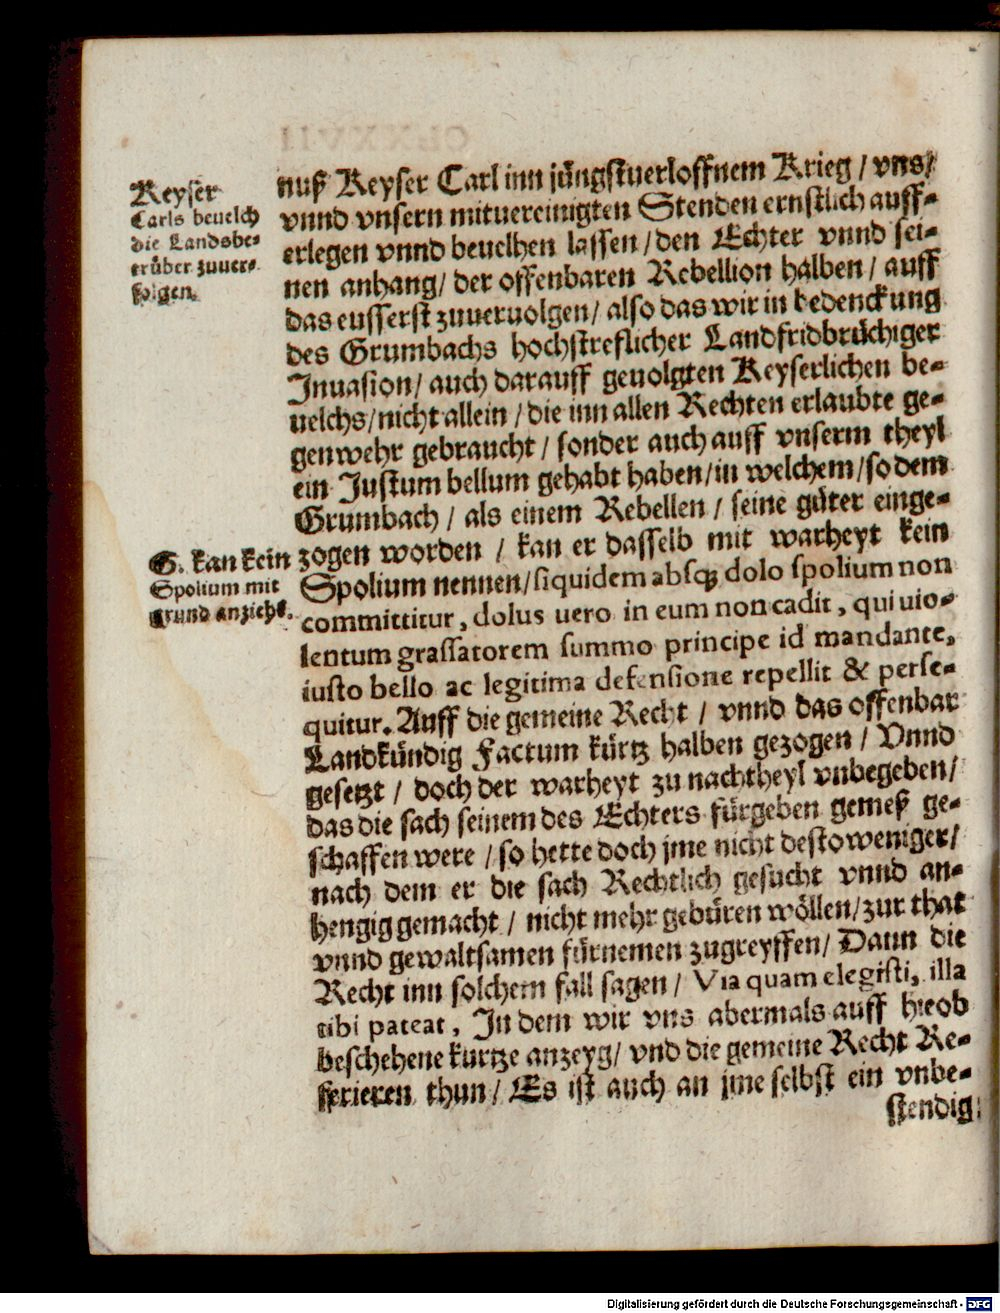 Keyser
Carls beuelch
die Landsbe-
trüber zuuer-
folgen.
nuß Keyser Carl inn jüngstuerloffnem Krieg / vns /
vnnd vnsern mituereinigten Stenden ernstlich auff-
erlegen vnnd beuelhen lassen / den Echter vnnd sei-
nen anhang / der offenbaren Rebellion halben / auff
das eusserst zuueruolgen / also das wir in bedenckung
des Grumbachs hochstreflicher Landfridbrüchiger
Inuasion / auch darauff geuolgten Keyserlichen be-
uelchs / nicht allein / die inn allen Rechten erlaubte ge-
genwehr gebraucht / sonder auch auff vnserm theyl
ein Justum bellum gehabt haben / in welchem / so dem
Grumbach / als einem Rebellen / seine güter einge-
G. kan kein
Spolium mit
grund anzieh.
zogen worden / kan er dasselb mit warheyt kein
Spolium nennen / siquidem absq; dolo spolium non
committitur, dolus uero in eum non cadit, qui uio-
lentum grassatorem summo principe id mandante,
iusto bello ac legitima defensione repellit & perse-
quitur. Auff die gemeine Recht / vnnd das offenbar
Landkündig Factum kürtz halben gezogen / Vnnd
gesetzt / doch der warheyt zu nachtheyl vnbegeben /
das die sach seinem des Echters fürgeben gemeß ge-
schaffen were / so hette doch jme nicht destoweniger /
nach dem er die sach Rechtlich gesucht vnnd an-
hengig gemacht / nicht mehr gebüren wöllen / zur that
vnnd gewaltsamen fürnemen zugreyffen / Dann die
Recht inn solchem fall sagen / Via quam elegisti, illa
tibi pateat, In dem wir vns abermals auff hieob
beschehene kurtze anzeyg / vnd die gemeine Recht Re-
ferieren thun / Es ist auch an jme selbst ein vnbe-
stendig:
Digitalisierung gefördert durch die Deutsche Forschungsgemeinschaft - DFG